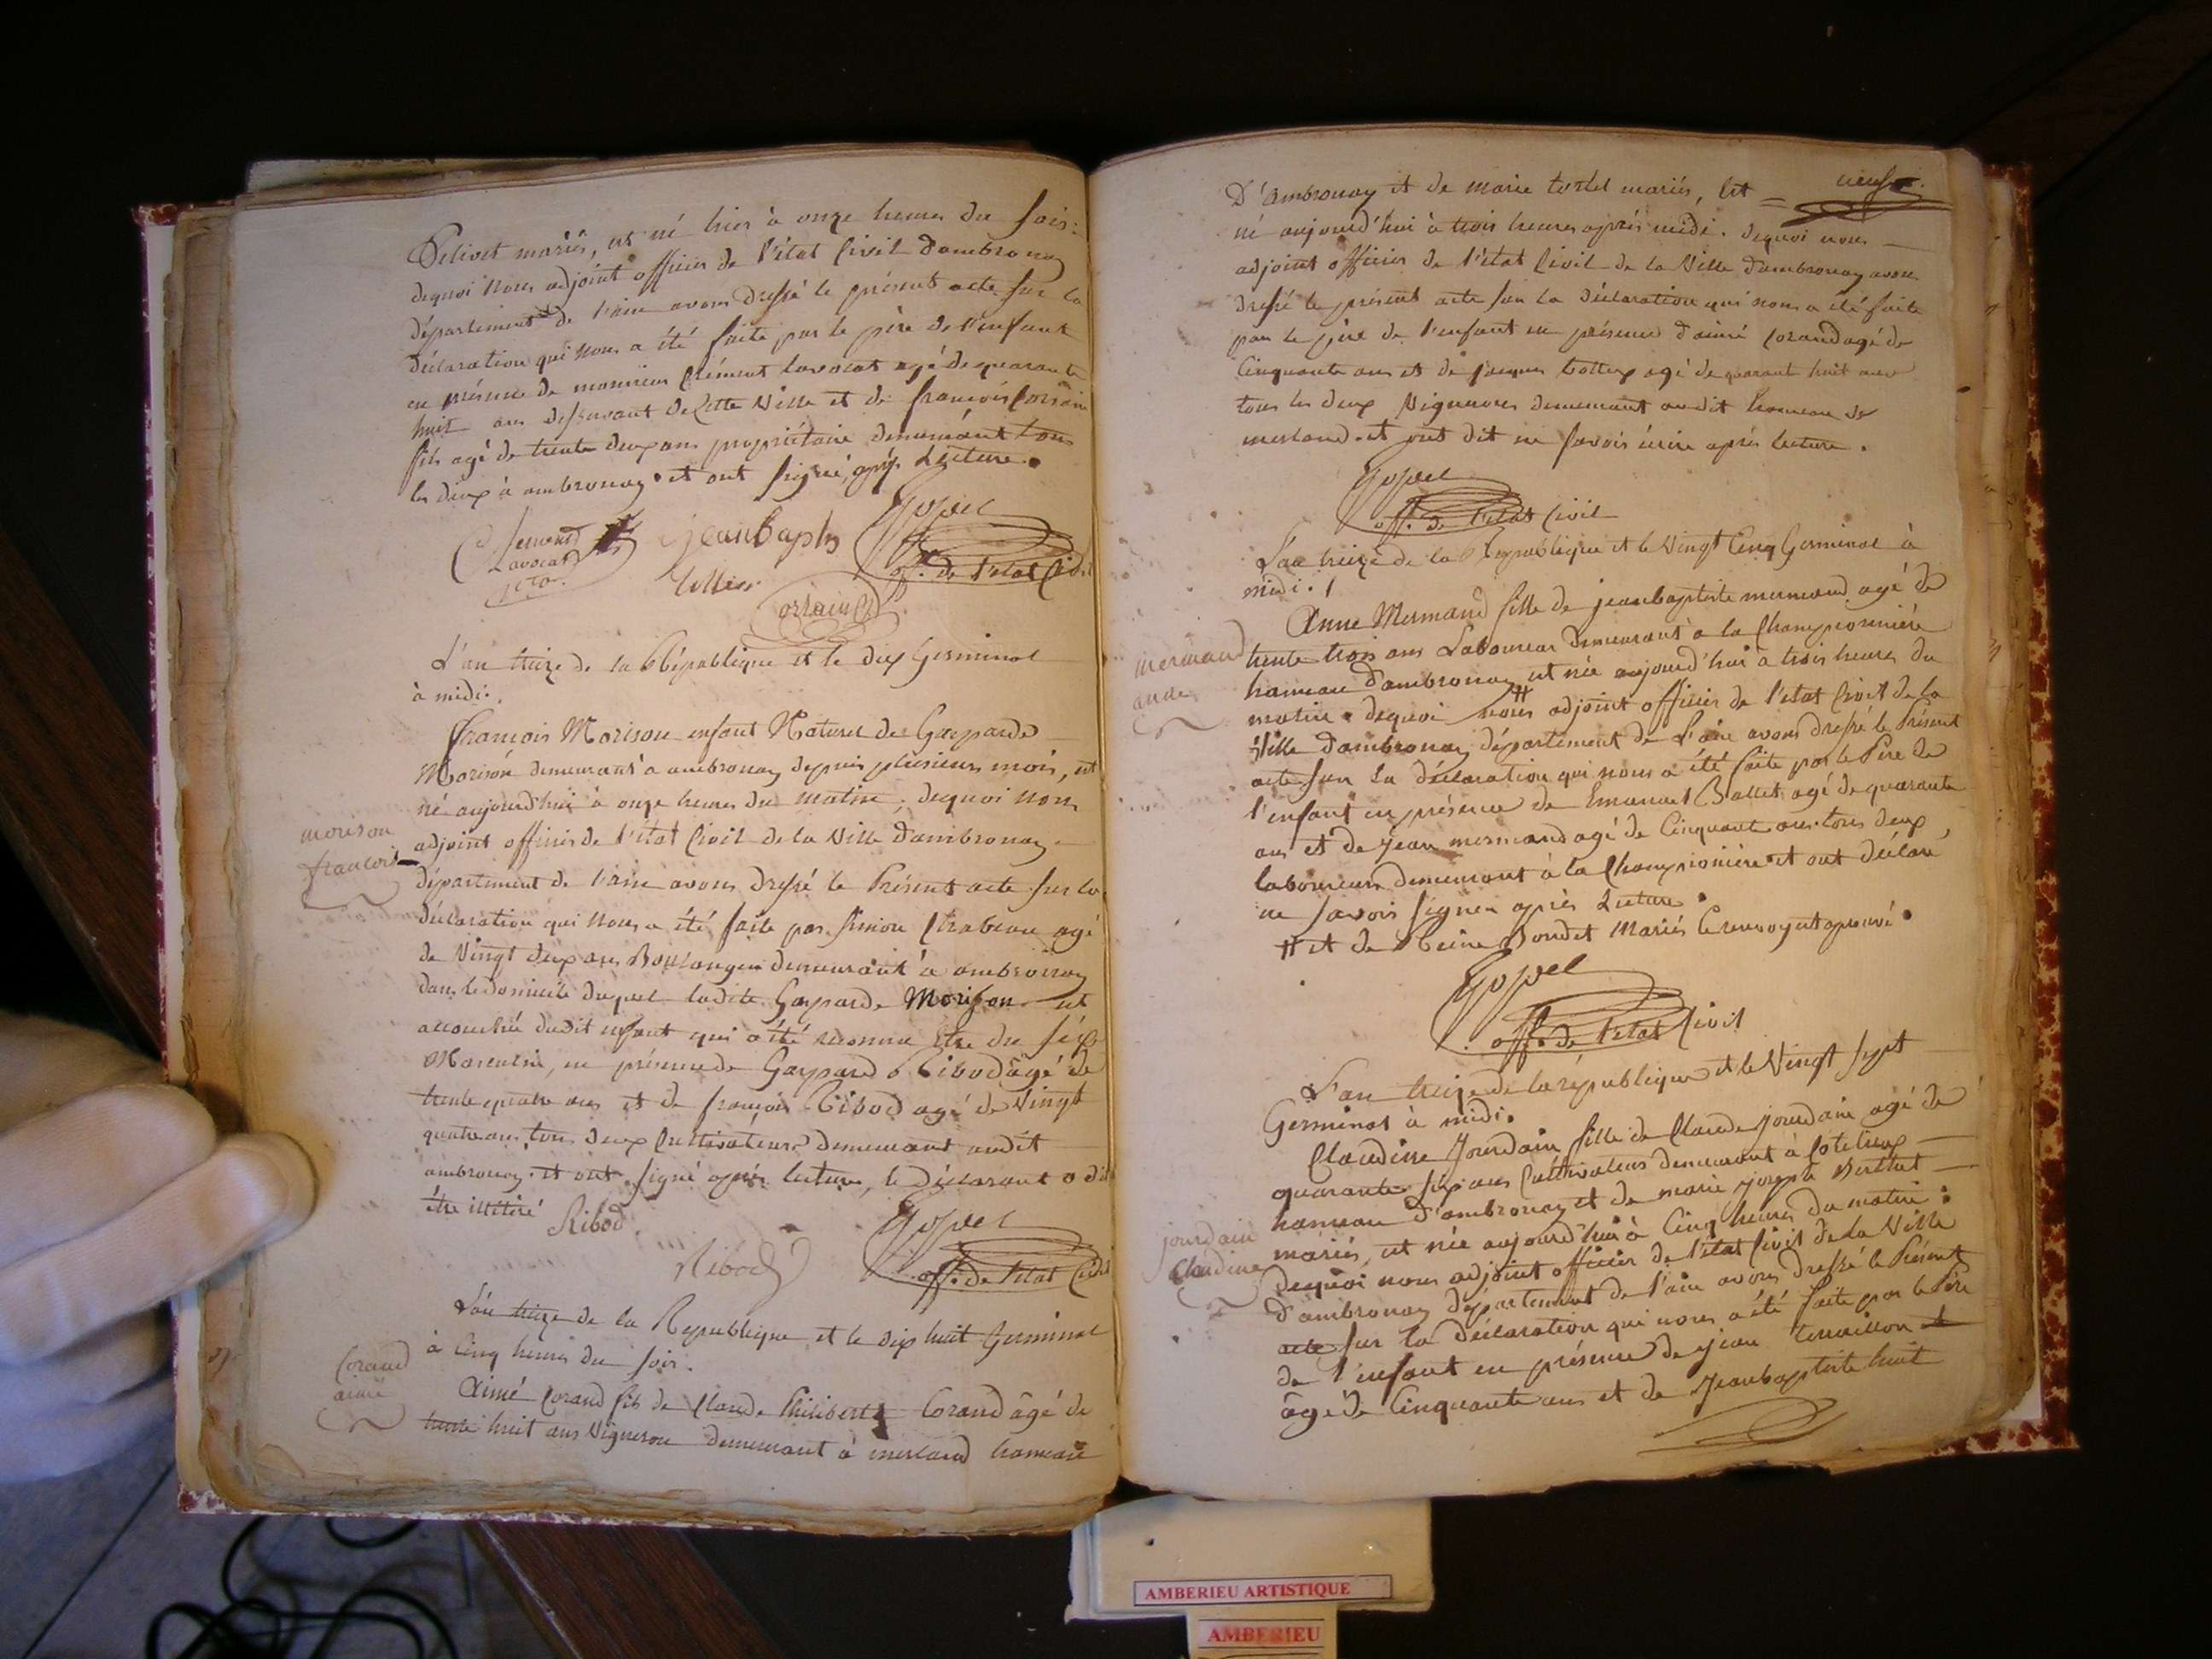 Pelivet mariés, est né hier à onze heures du soir:
dequoi Nous adjoint officier de l'état Civil d'ambronay
département de l'ain avons dressé le présent acte sur la
déclaration qui Nous a été faite par le père de l'enfant
en présence de monsieur Clément Lavocat agé de quarante
huit ans desservant de Cette Ville et de françois Corsain
fils agé de trente deux ans propriétaire demeurant tous
les deux à ambronay. et ont signé, après Lecture.
Clement
Lavocat
jean Baptis
off. de l'état Civil
orsain
L'an treize de la République et le dix Germinal
à midi.
françois Morison enfant Naturel de Gasparde
Morison demeurant a ambronay depuis plusieurs mois, est
né aujourd'hui à onze heures du matin; dequoi Nous
morison
adjoint officier de l'état Civil de la Ville d'ambronay
françois
département de l'ain avons dressé le Présent acte sur la
déclaration qui Nous a été faite par Simon Chabeau agé
de Vingt deux ans Boulanger demeurant a ambronay
dans le domicile duquel ladite Gasparde Morison est
accouchée dudit enfant qui a été reconnu etre du séxe
Masculin, en présence de Gaspard Ribod âgé de
trente quatre ans et de françois Ribod agé de Vingt
quatre ans tous deux Cultivateurs demeurant audit
ambronay. et ont signé après lecture, le déclarant a dit
être illitéré
Ribod
Ribod
off. de l'état Civil
L'an treize de la Republique et le dix huit Germinal
à Cinq heures du soir.
Corand
aimé
Aimé Corand fils de Claude Philibert Corand âgé de
trente huit ans Vigneron demeurant à merland hameau
D'ambronay et de marie tostel mariés, est
né aujourd'hui à trois heures après midi. dequoi nous
adjoint officier de l'état Civil de la Ville d'ambronay avons
dressé le présent acte sur la déclaration qui nous a été faite
par le père de l'enfant en présence d'aimé Corand agé de
Cinquante ans et de jacques agé de quarant huit ans
tous les deux Vignerons demeurant audit hameau de
merland. et ont dit ne savoir écrire après lecture.
off. de l'état Civil
L'an treize de la Republique et le Vingt Cinq Germinal à
midi.
Anne Mermand fille de jeanbaptiste mermand agé de
mermand
trente trois ans Laboureur demeurant a la Championnière
anne
hameau d'ambronay # est née aujourd'hui à trois heures du
matin. dequoi nous adjoint officier de l'état Civil de la
Ville d'ambronay département de l'ain avons dressé le Présent
acte sur la déclaration qui nous a été faite par le Père de
l'enfant en présence de Emanuel Ballet agé de quarante
ans et de jean mermand agé de Cinquante ans tous deux
laboureurs demeurant à la Championière et ont déclaré
ne savoir signer après Lecture.
# et de Reine Bondet Mariés le renvoy est aprouvé.
off. de l'état Civil
L'an treize de la république et le Vingt sept
Germinal à midi.
Claudine Jourdain fille de Claude Jourdain agé de
quarante six ans Cultivateur demeurant à
hameau d'ambronay et de marie joseph Berthet
jourdain
mariés, est née aujourd'hui à Cinq heures du matin:
Claudine
dequoi nous adjoint officier de l'état Civil de la Ville
d'ambronay département de l'ain avons dressé le Présent
acte sur la déclaration qui nous a été faite par le Père
de l'enfant en présence de jean
âgé de Cinquante ans et de Jeanbaptiste huit
AMBERIEU ARTISTIQUE
AMBERIEU